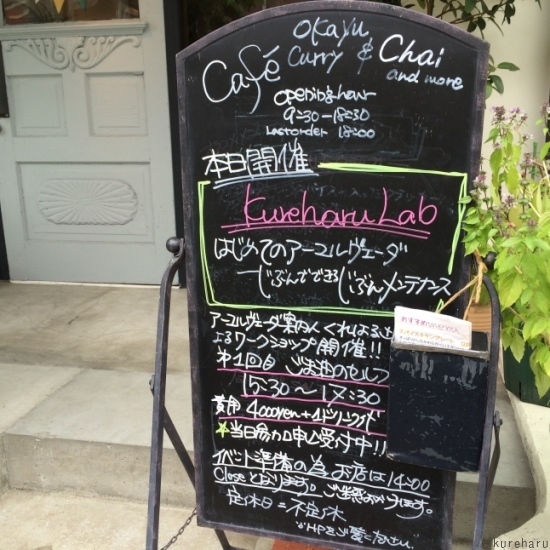 okayu
Café Curry & Chai
and more
opening hour
9:30-18:30
Last order 18:00
本日開催
kureharu Lab
はじめてのアーユルヴェーダ
じぶんでできるじぶんメンテナンス
アーユルヴェーダ案内人くれはるに
よるワークショップ開催!!
第1回目 ごま油のセルフ
15:30〜17:30
費用 4000yen+1ドリンク
☆当日参加申込受付中!!
イベント準備の為お店は14:00
Closeとなります。ご迷惑おかけします。
定休日=不定休
HPをご覧ください。
kureharu